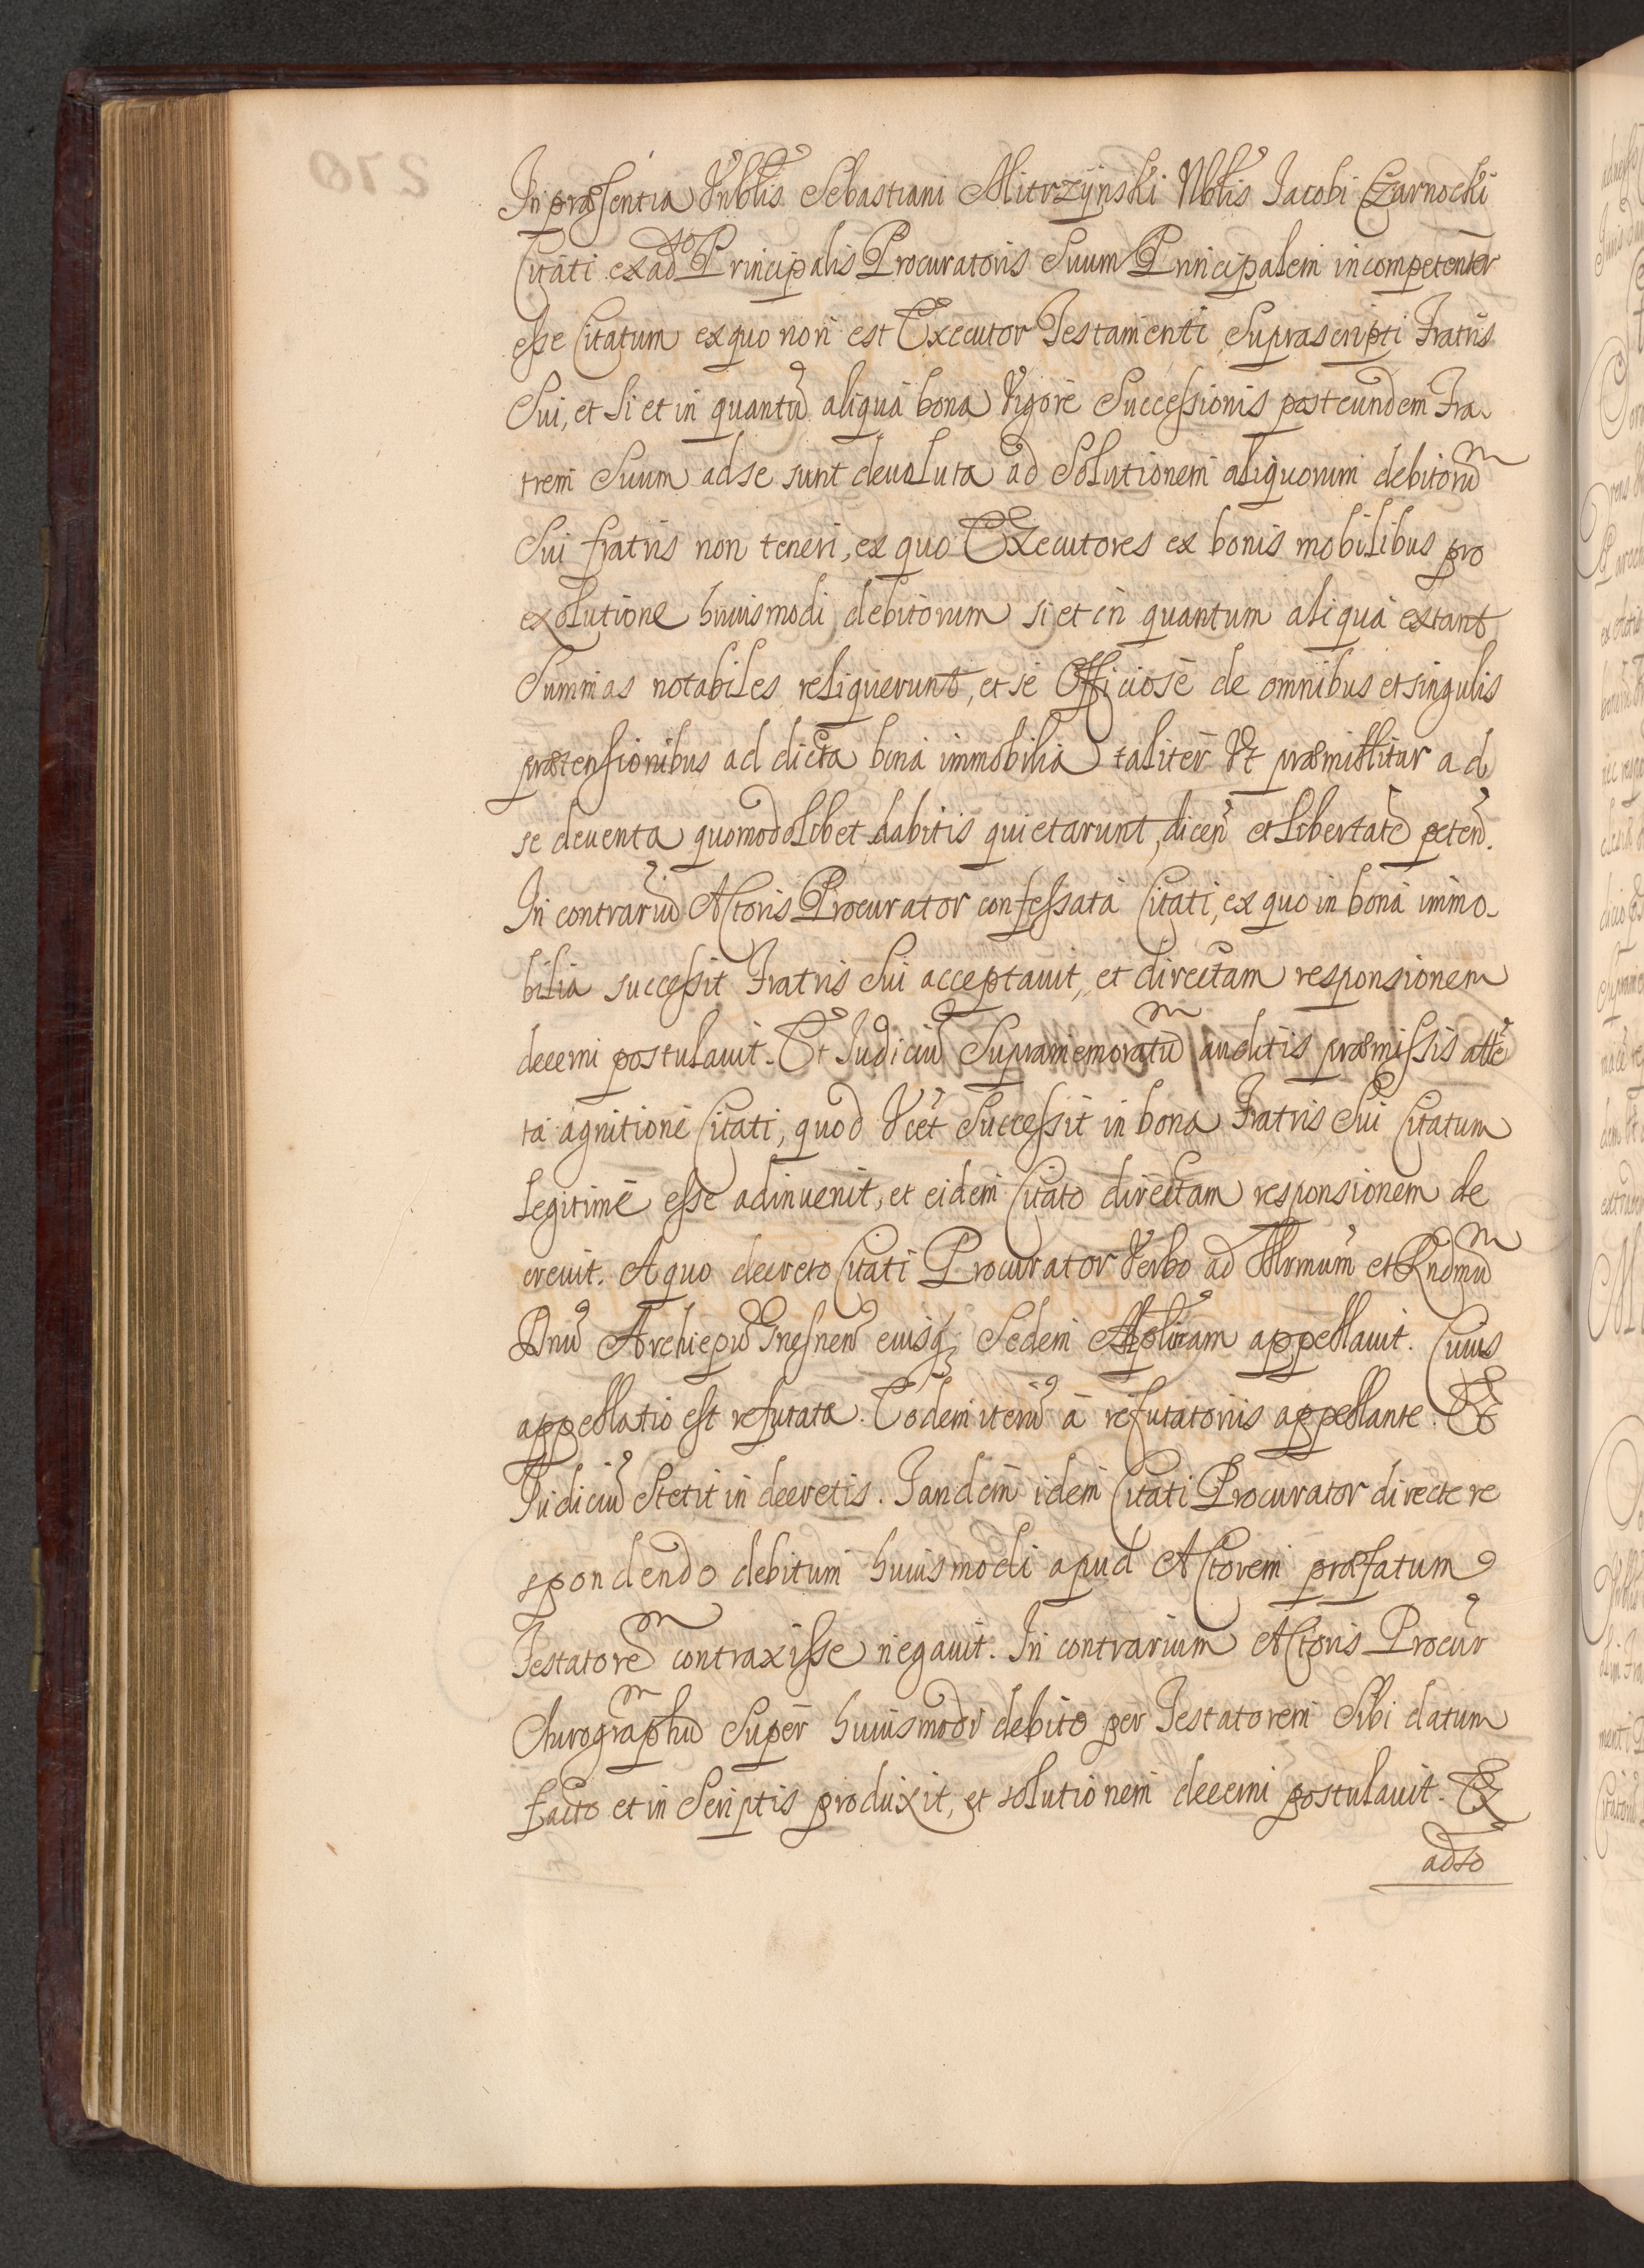 In præsentia Vnblis Sebastiani Mitrzÿnski Nblis Jacobi Czarnocki
Citati ex adso Principalis Procuratoris Suum Principalem incompetenter
esse Citatum ex quo non est Executor Testamenti Suprascripti Fratris
Sui, et Si et in quantũ aliqua bona Vigore Successionis post eundem Fra-
trem Suum ad se sunt deuoluta ad Solutionem aliquorum debitorũ
Sui fratris non teneri, ex quo Executores ex bonis mobilibus pro
exolutione huiusmodi debitorum si et in quantum aliqua extant
Summas notabiles reliquerunt, et se Officiose de omnibus et singulis
prætensionibus ad dicta bona immobilia taliter Vt præmittitur ad
se deuenta quomodolibet habitis quietarunt, diceñ et libertatẽ peteñ.
In contrariũ Actoris Procurator confessata Citati, ex quo in bona immo-
bilia successit Fratris Sui acceptauit, et directam responsionem
decerni postulauit. Et Judiciũ Supramemoratũ auditis præmissis atte
ta agnitione Citati, quod Vcet Successit in bona Fratris Sui Citatum
Legitime esse adinuenit, et eidem Citato directam responsionem de
creuit. A quo decreto Citati Procurator Verbo ad Illrmum et Rndmũ
Dnũ Archiepũ Gnesneñ eiusq Sedem Aplicam appellauit. Cuius
appellatio est refutata. Eodem iterũ a refutatoriis appellante. Et
Judiciũ Stetit in decretis. Tandem idem Citati Procurator directe re
spondendo debitum huiusmodi apud Actorem præfatum
Testatorẽ contraxisse negauit. In contrarium Actoris Procur
Chirographũ Super huiusmodi debito per Testatorem Sibi datum
facto et in Scriptis produxit, et solutionem decerni postulauit. Ex
adso